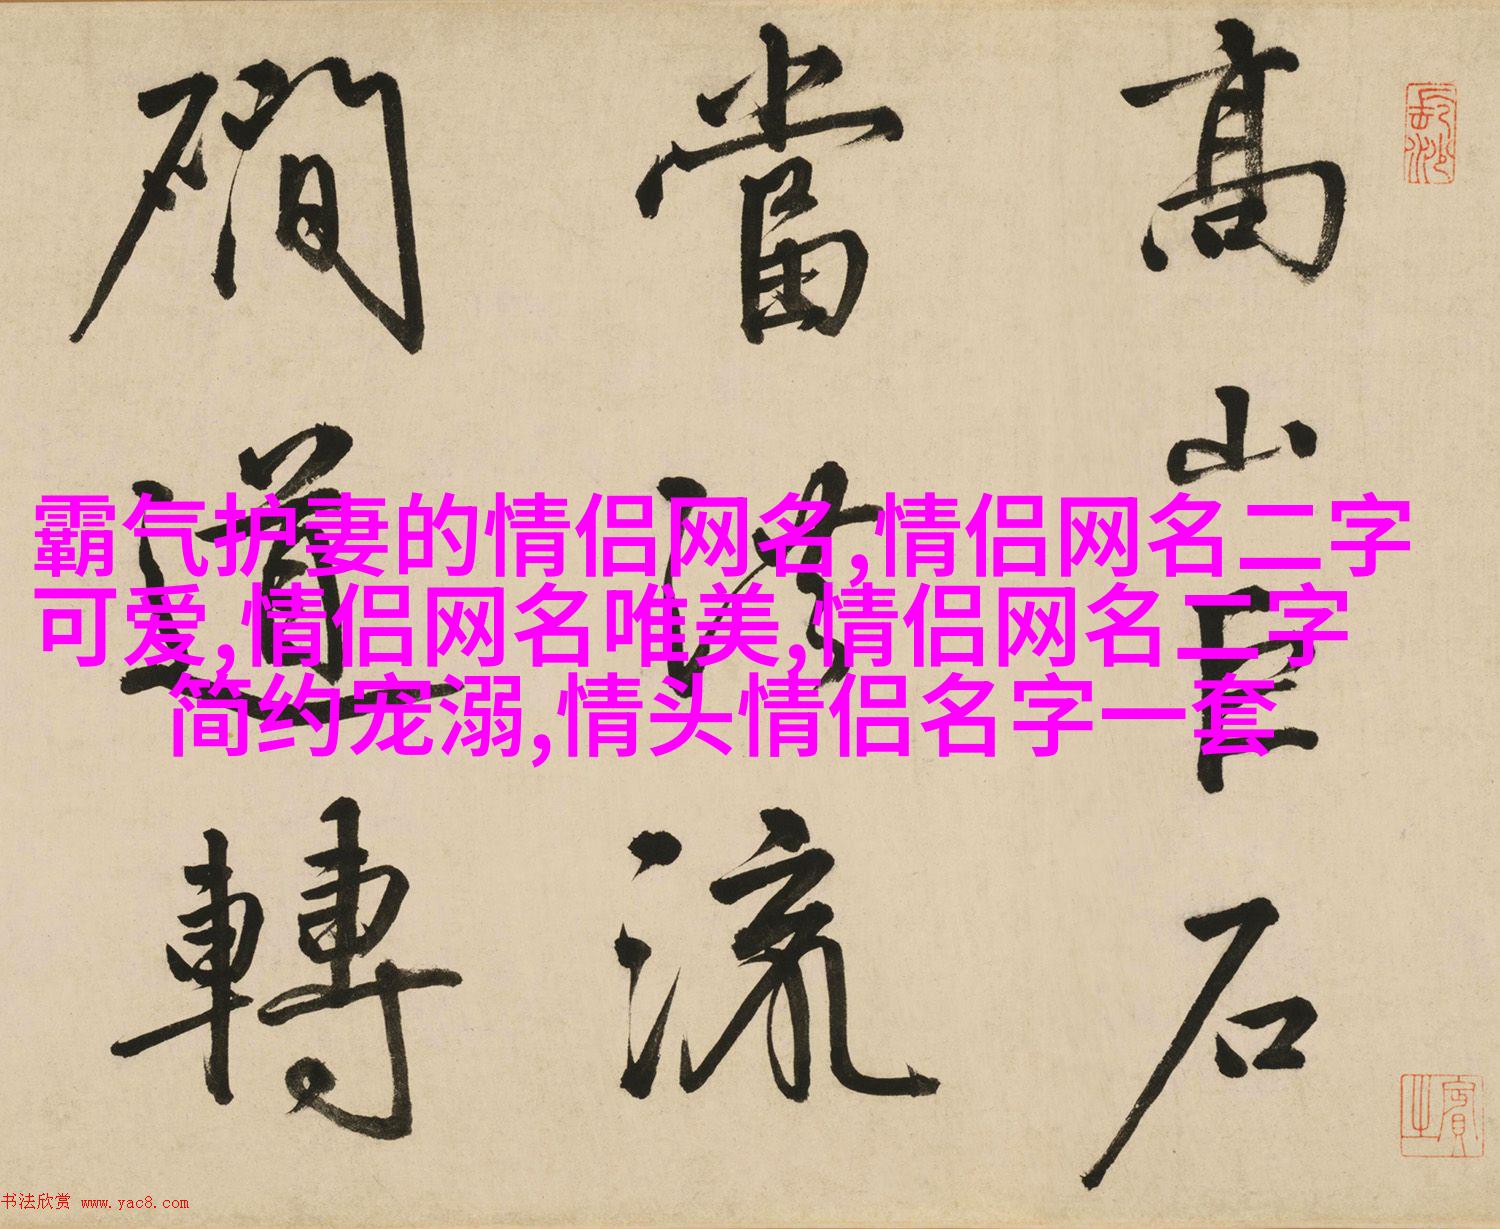 霸气护妻的情侣网名,情侣网名二字
可爱,情侣网名唯美,情侣网名二字
简约宠溺,情头情侣名字一套
長沙
高山巨石
賓之
當流
磵道轉
书法欣赏 www.yac8.com